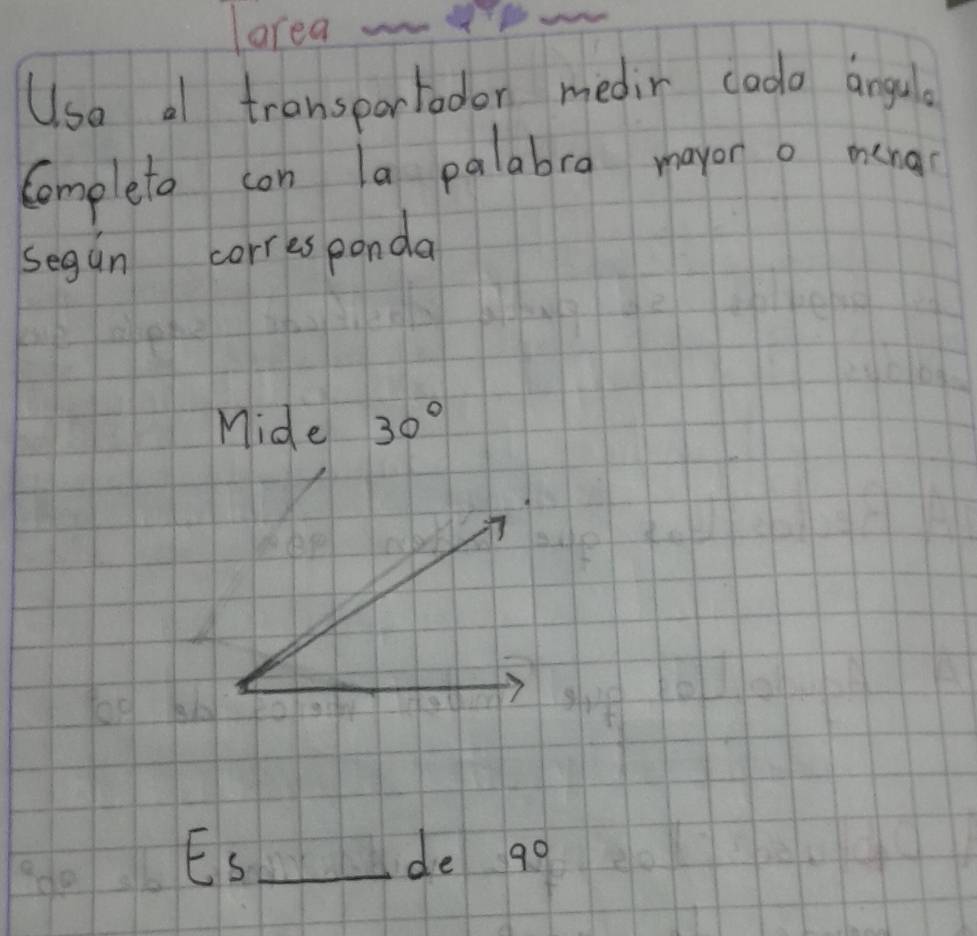 Tarea
Usa el transportador medir cada ángulo
Completa con la palabra mayor o menor
según corresponda
Mide 30°
Es ____ de 9°